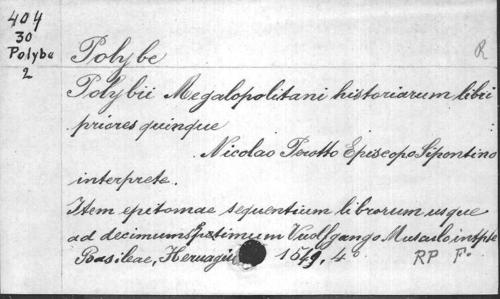 404
30
Polybe
2
Polybe
R
Polybii Megalopolitani historiarum libri
priores quinque
Nicolao Perotto Episcopo Sipontino
interprete.
Item epitomae sequentium librorum usque
ad decimum septimum Vuolfgango Musculo intpte
Basileae, Hervagius 1549, 4° RP F.